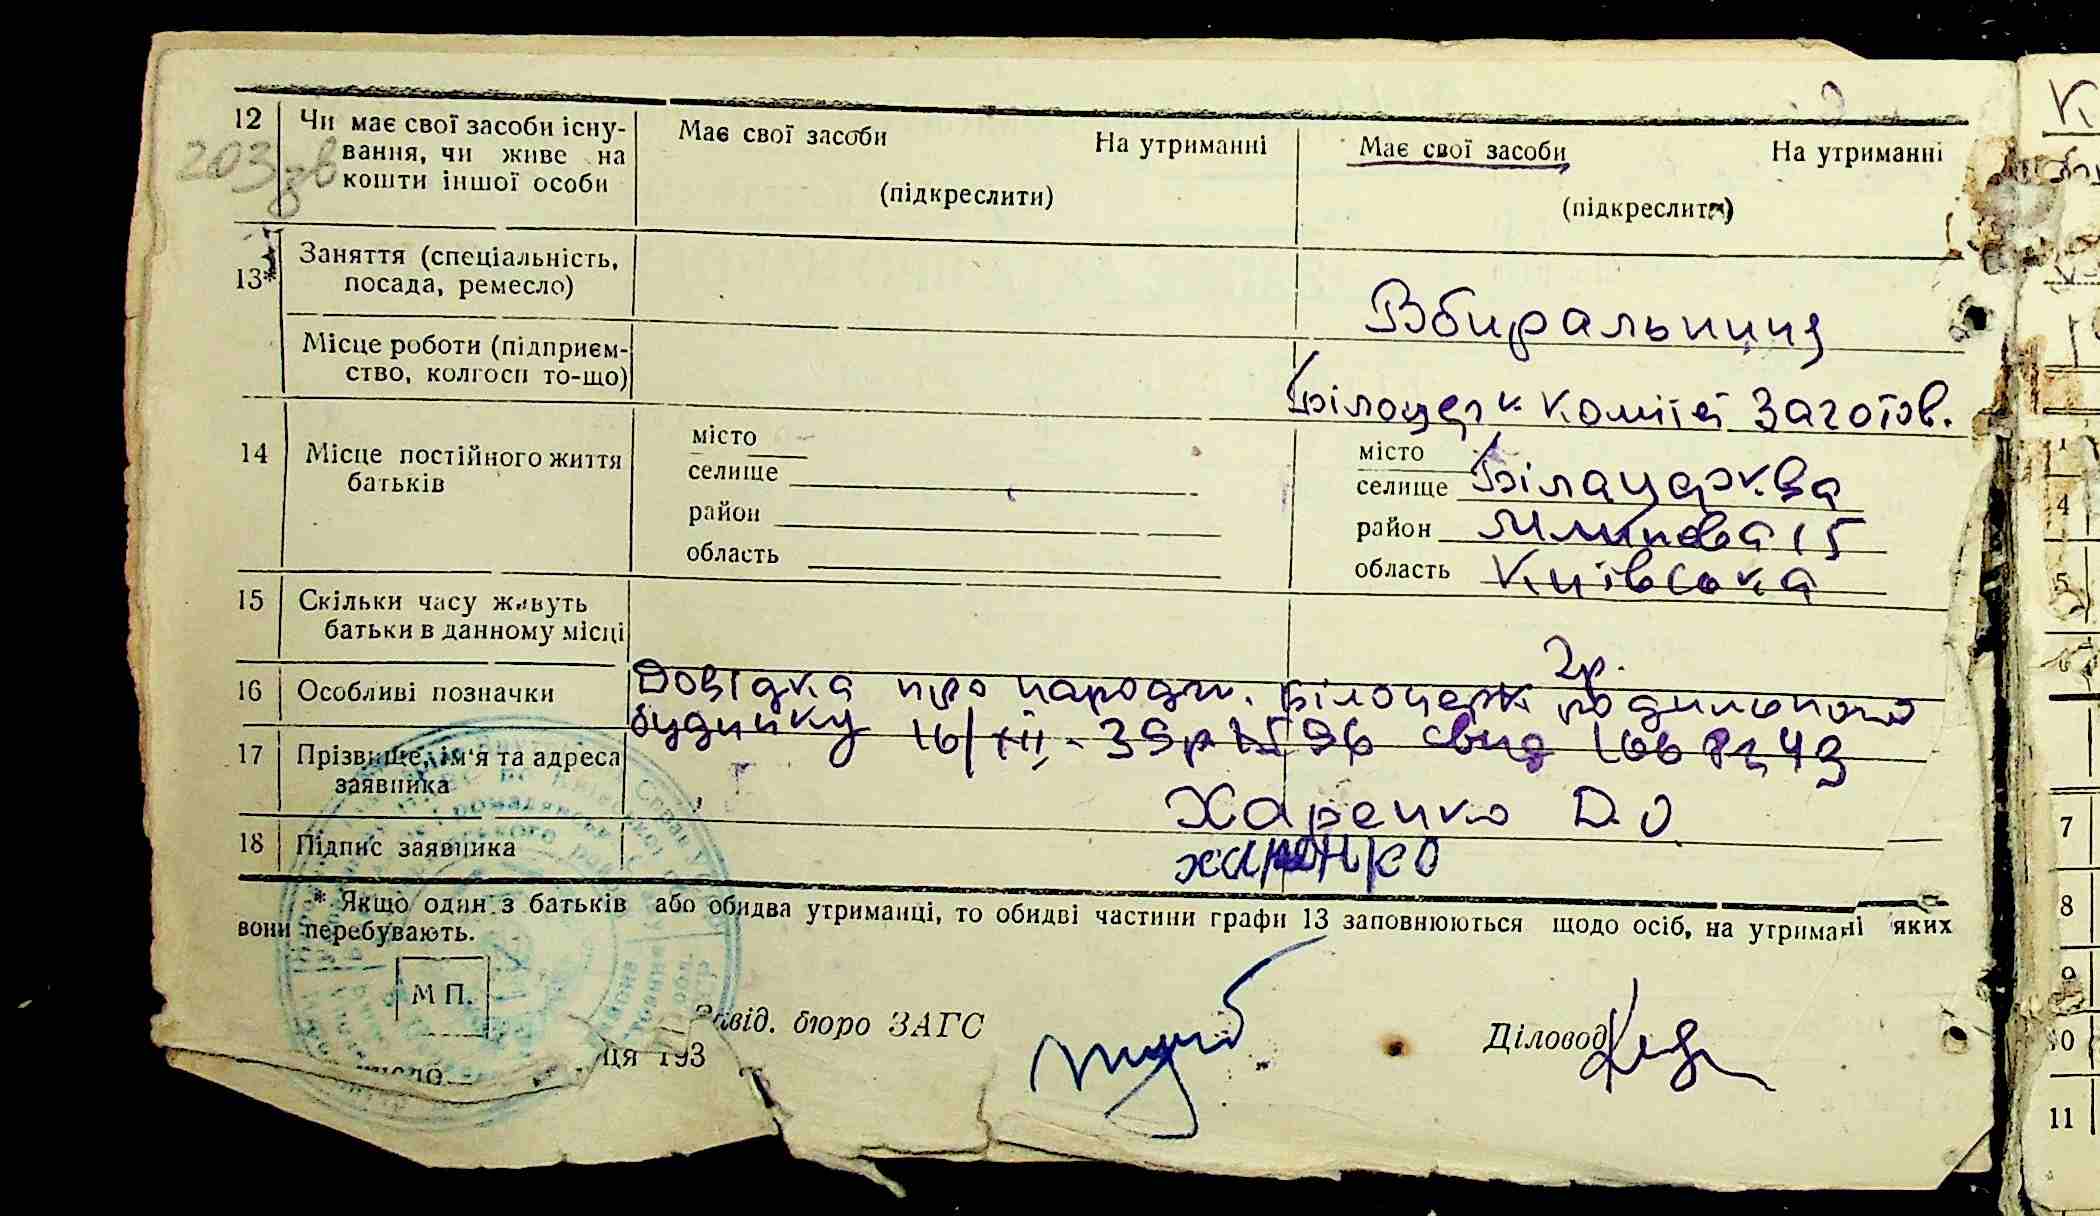 12 Чи має свої засоби існу-
вання, чи живе на
кошти іншої особи
Має свої засоби На утриманні
(підкреслити)
Має свої засоби На утриманні
(підкреслити)
203 зв
13* Заняття (спеціальність,
посада, ремесло)
Вбиральниця
Місце роботи (підприєм-
ство, колгосп то-що)
Білоцерк Комітет Заготов.
14 Місце постійного життя
батьків
місто
селище
район
область
місто
селище Білацерква
район 15
область Київська
15 Скільки часу живуть
батьки в данному місці
2р.
16 Особливі позначки
Довідка про народж. Білоцерк родильного
будинку 16/XII - 39р № 96 свид
17 Прізвище, ім'я та адреса
заявника
Харенко Д.О
18 Підпис заявника
харенко
* Якщо один з батьків або обидва утриманці, то обидві частини графи 13 заповнюються щодо осіб, на утримані яких
вони перебувають.
М П.
Завід. бюро ЗАГС
Діловод
число ця 193
К
4
5
6
7
8
9
10
11